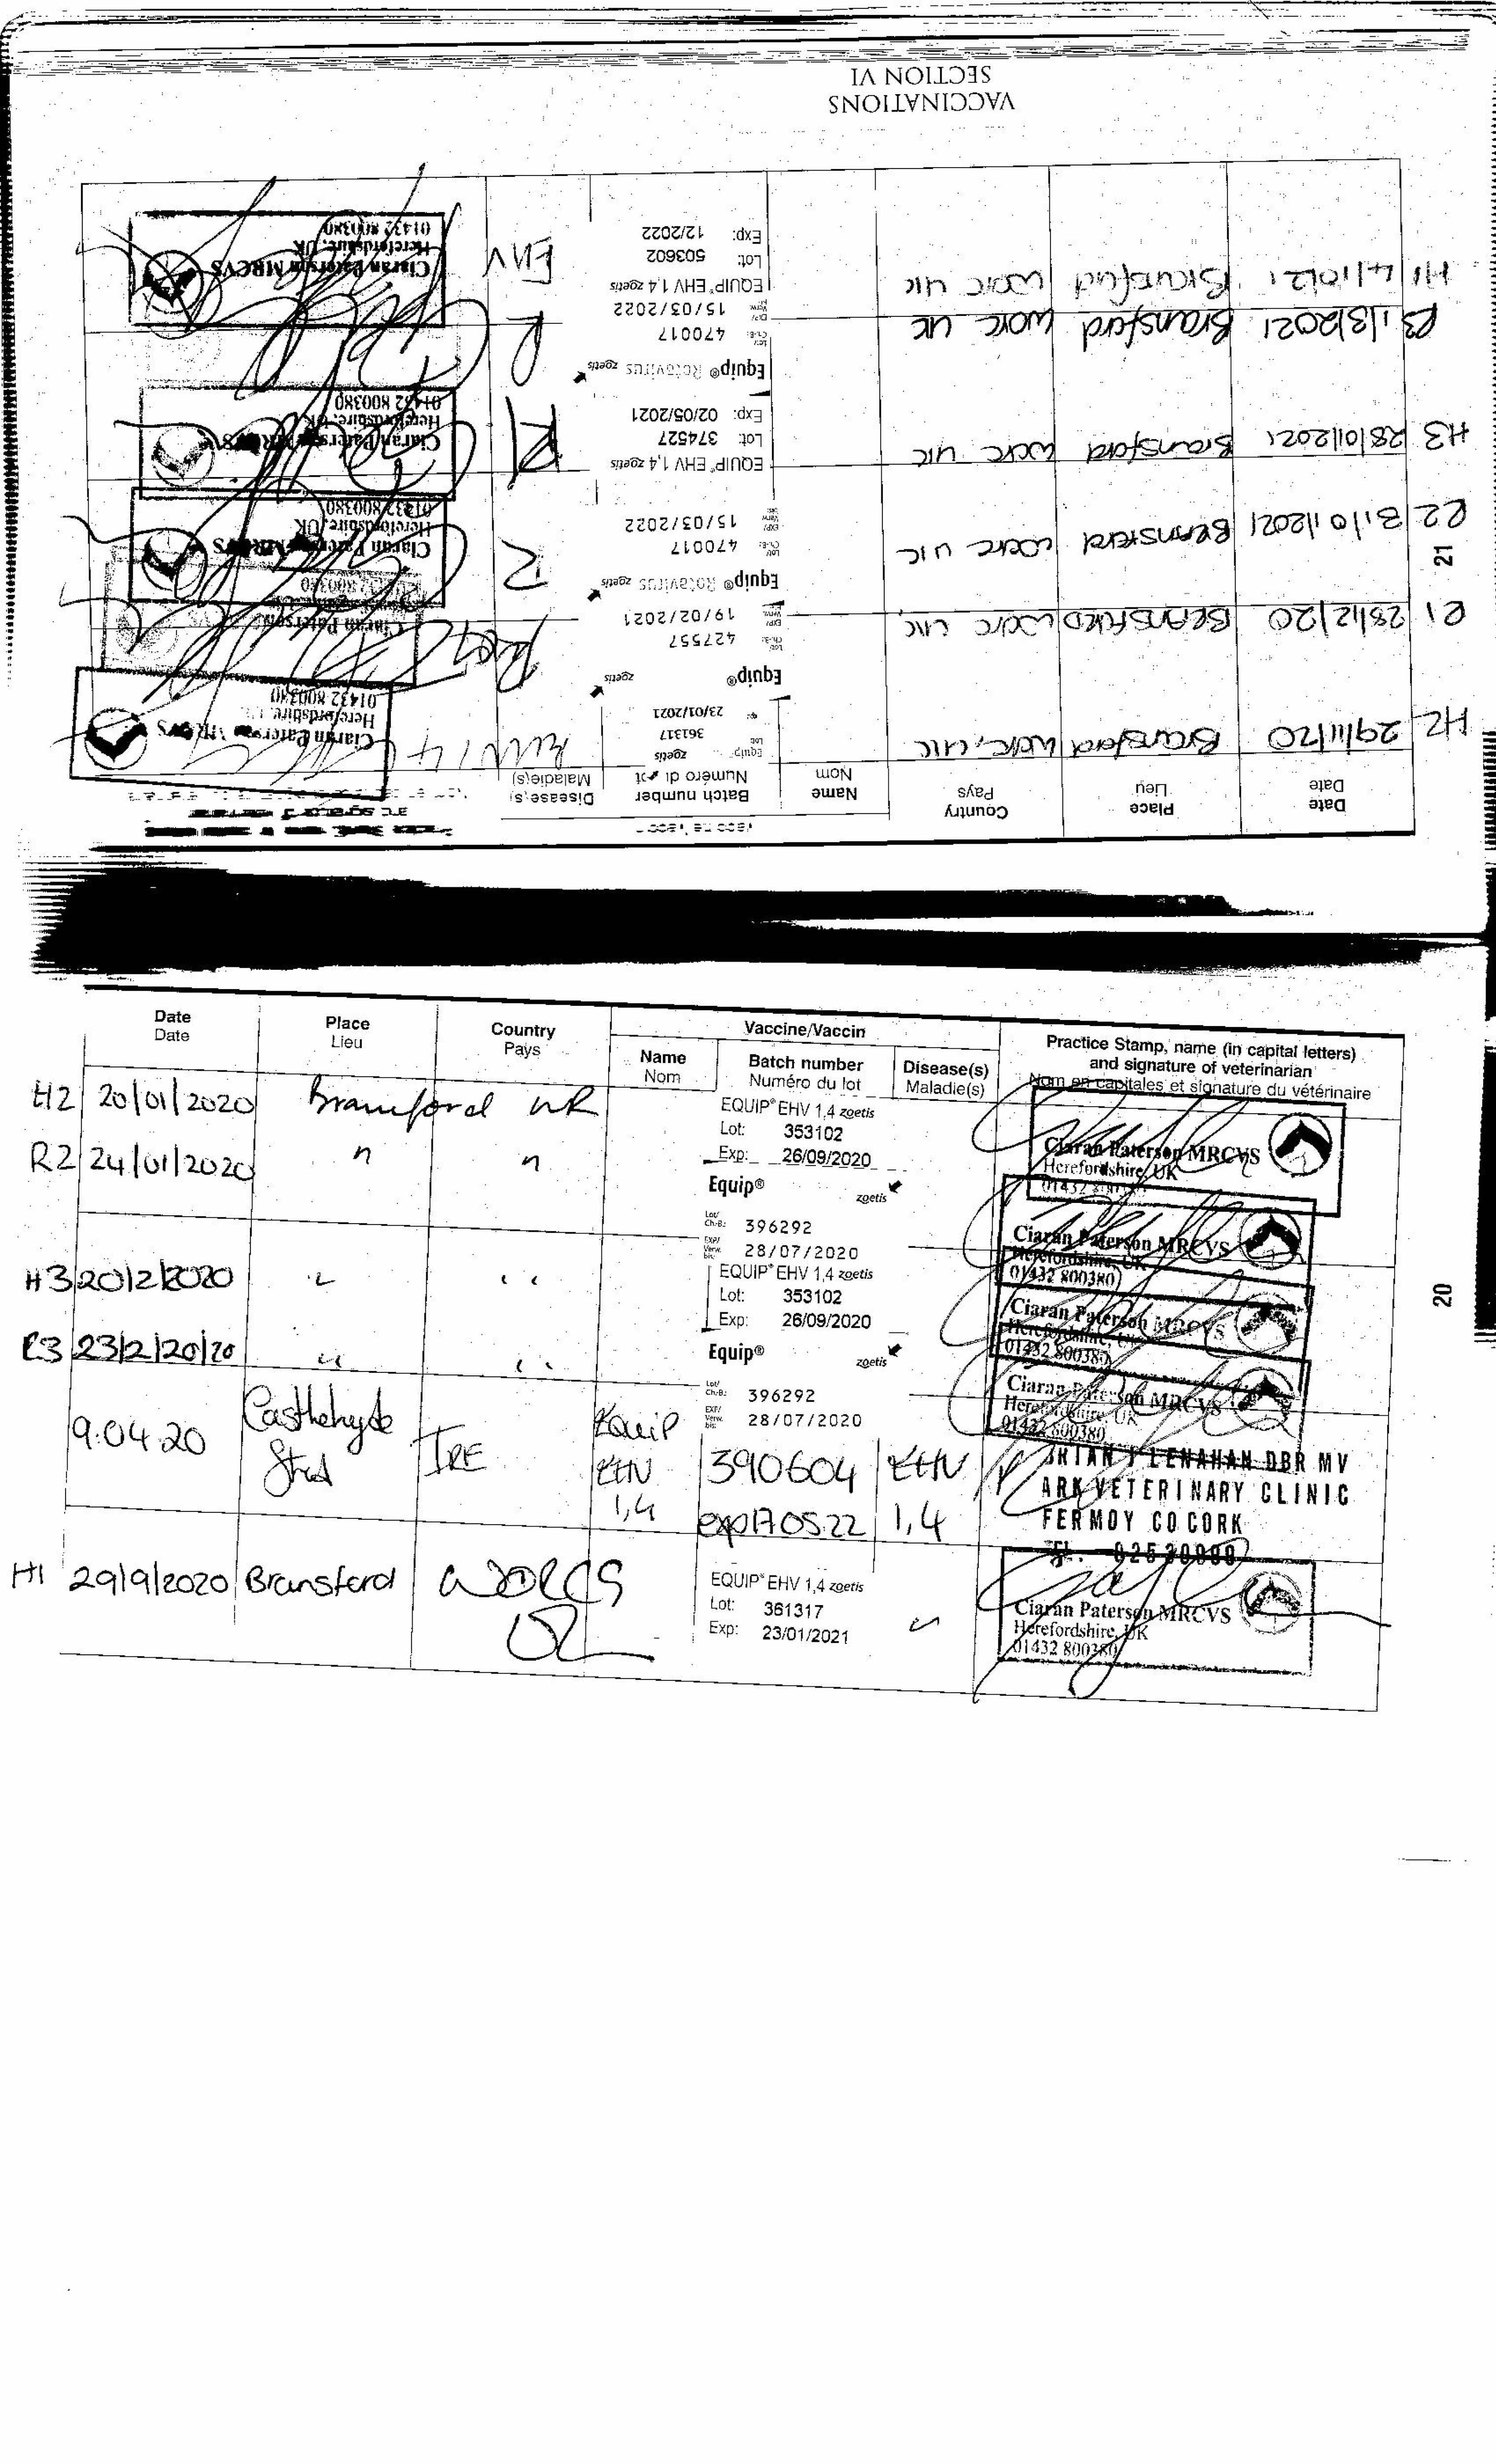 VACCINATIONS
SECTION VI
Date Place Country Name Batch number Disease(s)
Date Lieu Pays Nom Numéro du lot Maladie(s)
H2 29/11/20 Bransford Worc, UK
Equip zoetis
361317
23/01/2021
Ciaran Paterson MRCVS
Herefordshire, UK
01432 800380
R1 28/12/20 BRANSFORD Worc UK
Equip® zoetis
427557
19/02/2021
Ciaran Paterson
R2 31/01/2021 Bransford Worc UK
Equip® Rotavirus zoetis
470017
15/03/2022
R
Ciaran Paterson MRCVS
Herefordshire, UK
01432 800380
H3 28/01/2021 Bransford Worc UK
EQUIP® EHV 1,4 zoetis
Lot: 374527
Exp: 02/05/2021
Ciaran Paterson MRCVS
Herefordshire, UK
01432 800380
R3 1/3/2021 Bransford Worc UK
Equip® Rotavirus zoetis
470017
15/03/2022
R
H1 4/10/21 Bransford Worc UK
EQUIP® EHV 1,4 zoetis
Lot: 503602
Exp: 12/2022
EHV
Ciaran Paterson MRCVS
Herefordshire, UK
01432 800380
21
Date Place Country Vaccine/Vaccin Practice Stamp, name (in capital letters)
Date Lieu Pays Name Batch number Disease(s) and signature of veterinarian
Nom Numéro du lot Maladie(s) Nom en capitales et signature du vétérinaire
H2 20/01/2020 Bransford UK
EQUIP® EHV 1,4 zoetis
Lot: 353102
Exp: 26/09/2020
Ciaran Paterson MRCVS
Herefordshire, UK
R2 24/01/2020 " "
Equip® zoetis
Lot/ Ch.-B.: 396292
EXP/ Verw. bis: 28/07/2020
Ciaran Paterson MRCVS
Herefordshire, UK
01432 800380
H3 20/2/2020 " "
EQUIP® EHV 1,4 zoetis
Lot: 353102
Exp: 26/09/2020
Ciaran Paterson MRCVS
Herefordshire, UK
01432 800380
R3 23/2/20/20 " "
Equip® zoetis
Lot/ Ch.-B.: 396292
EXP/ Verw. bis: 28/07/2020
Ciaran Paterson MRCVS
Herefordshire, UK
01432 800380
9.04.20 Castlehyde Stud IRE Equip EHV 1,4 390604 exp 17.05.22 EHV 1,4
LENAHAN DBR MV
ARK VETERINARY CLINIC
FERMOY CO CORK
H1 29/9/2020 Bransford WORCS
EQUIP® EHV 1,4 zoetis
Lot: 361317
Exp: 23/01/2021
Ciaran Paterson MRCVS
Herefordshire, UK
01432 800380
20